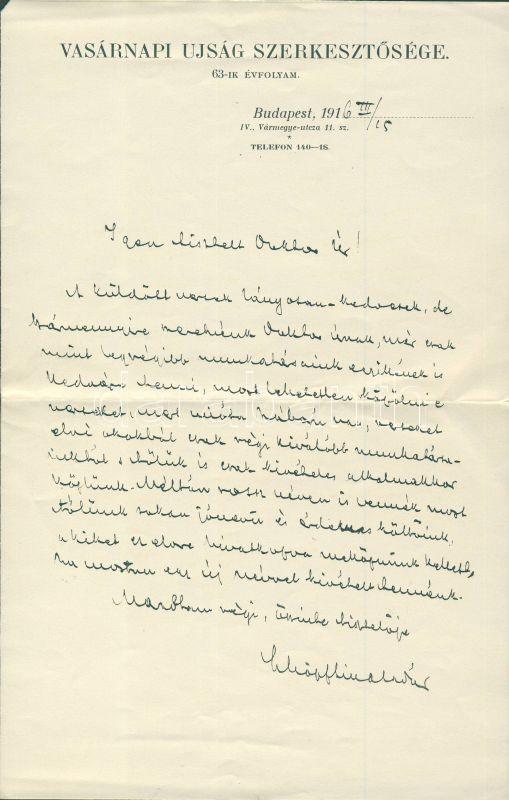 VASÁRNAPI UJSÁG SZERKESZTŐSÉGE.
63-IK ÉVFOLYAM.
Budapest, 1916 III/15
IV., Vármegye-utcza 11. sz.
*
TELEFON 140—18.
Igen tisztelt Doktor Úr!
A küldött versek lányosan-kedvesek, de
bármennyire szeretnénk Doktor Úrnak, már csak
mint legrégibb munkatársaink egyikének is
kedvére tenni, most lehetetlen közölni e
verseket, mert mióta háboru van, verseket
elvi okokból csak régi kiválóbb munkatársa-
inktól közlünk és csak kivételes alkalmakkor
közlünk. Méltán rossz néven is vennék most
tőlünk sokan jónevü és érdemes költőink,
a kiket ez elvre hivatkozva mellőznünk kellett,
ha mostan egy új névvel kivételt tennénk.
Maradtam régi, őszinte tisztelője
Schöpflin Aladár